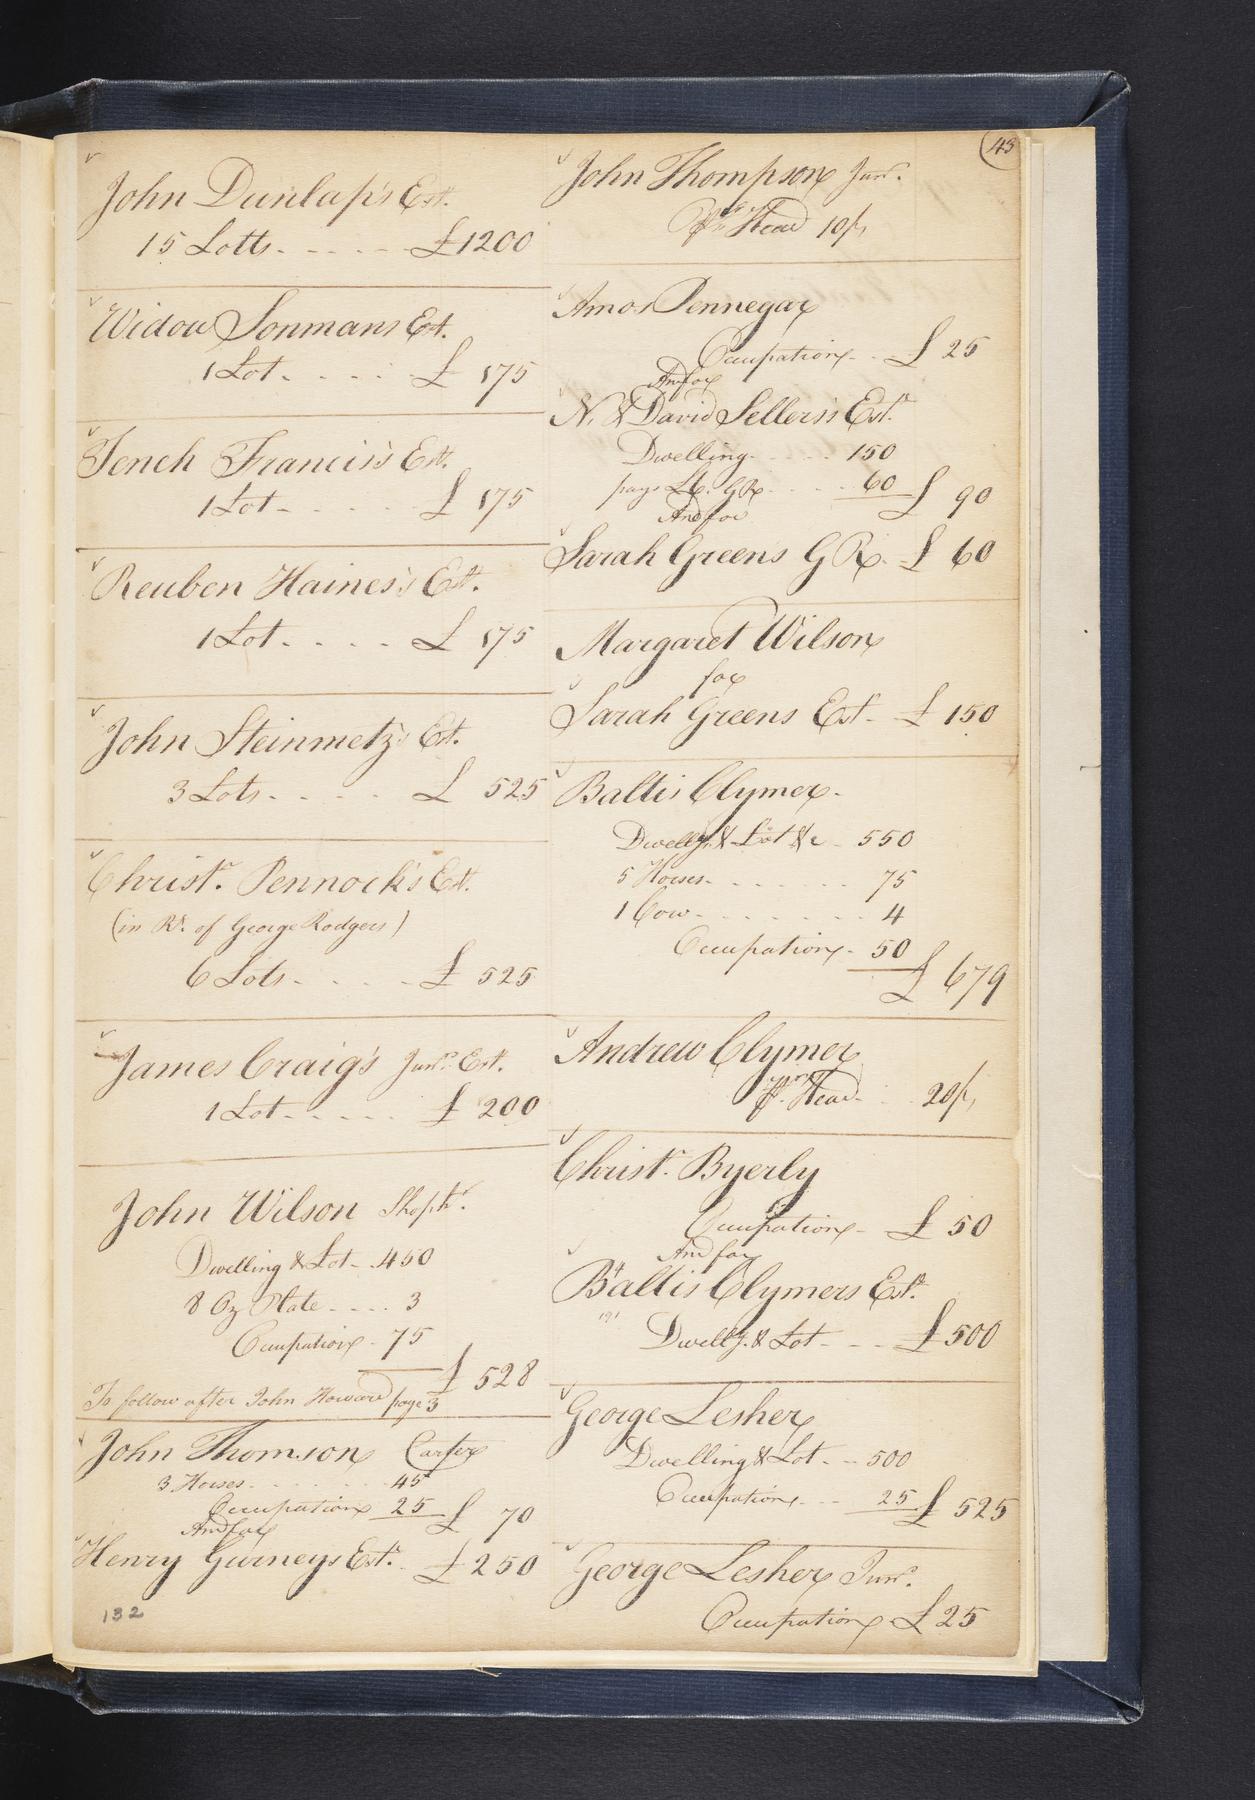 43
John Dunlap's Est.
15 Lotts - - - - - £1200
Widow Sonmans Est.
1 Lot - - - - £ 175
Tench Francis's Est.
1 Lot - - - - - £ 175
Reuben Haines's Est.
1 Lot - - - - £ 175
John Steinmetz's Est.
3 Lots - - - - £ 525
Christr. Pennock's Est.
(in Rt. of George Rodgers)
6 Lots - - - - £ 525
James Craig's Junr. Est.
1 Lot - - - - £ 200
John Wilson Shopkr.
Dwelling & Lot - 450
8 Oz Plate - - - - 3
Occupation - 75
£ 528
To follow after John Howard page 3
John Thomson Carter
3 Horses - - - - 45
Occupation 25 £ 70
And for
Henry Gurneys Estr. - £ 250
132
John Thompson Junr.
Head 10/,
Amos Pennegar
Occupation - - £ 25
And for
N. & David Sellers's Estr.
Dwelling - - - - 150
pays G R - - - 60 £ 90
And for
Sarah Green's G R - £ 60
Margaret Wilson
for
Sarah Greens Estr - £ 150
Baltis Clymer -
Dwellg. & Lot &c - 550
5 Horses - - - - - 75
1 Cow - - - - - - 4
Occupation - 50
£ 679
Andrew Clymer
Head - - 20/,
Christr. Byerly
Occupation - £ 50
And for
Baltis Clymers Estr.
Dwellg. & Lot - - - £ 500
George Lesher
Dwelling & Lot - - 500
Occupation - - - 25 £ 525
George Lesher Junr.
Occupation - £ 25